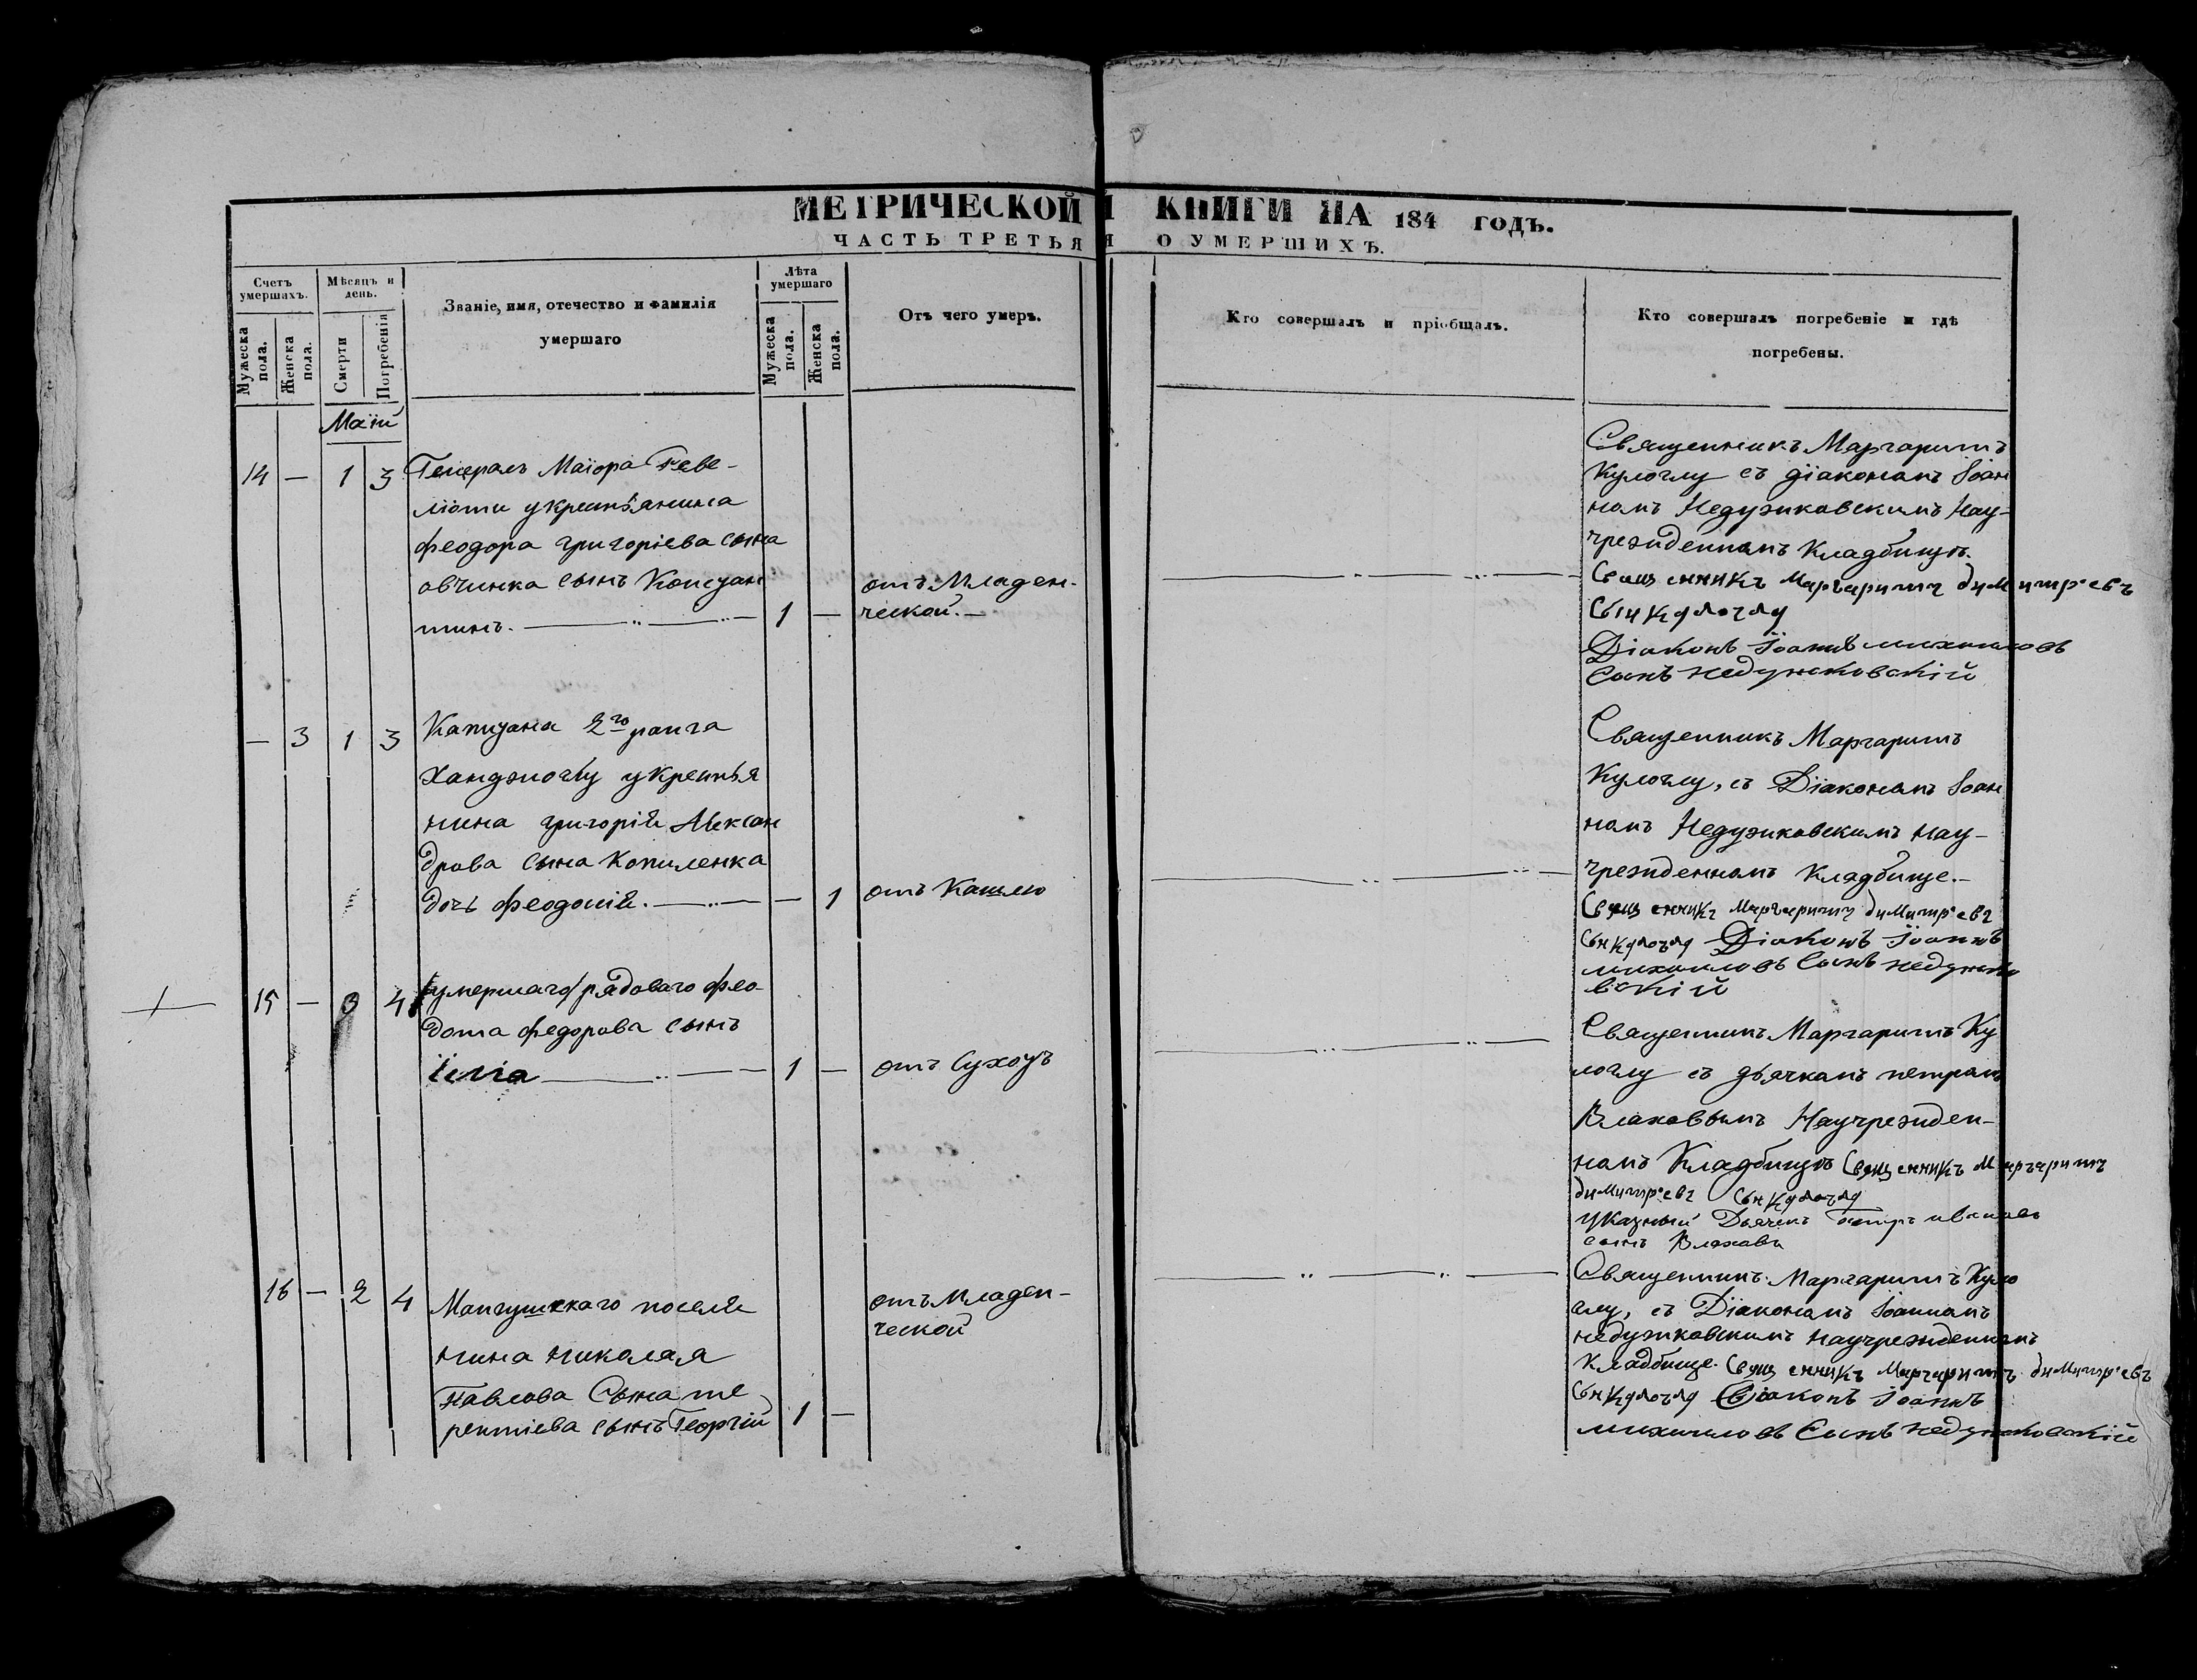 МЕТРИЧЕСКОЙ КНИГИ НА 184 ГОДЪ.
ЧАСТЬ ТРЕТЬЯ О УМЕРШИХЪ.
Счетъ умершахъ.
Мѣсяцъ и день.
Званіе, имя, отечество и фамилія умершаго
Лѣта умершаго
Отъ чего умеръ.
Кто совершалъ и пріобщалъ.
Кто совершалъ погребеніе и гдѣ погребены.
Мужеска пола.
Женска пола.
Смерти
Погребенія
Мужеска пола.
Женска пола.
Маій
14 — 1 3
Генералъ Маіора Реве-
ліоти укрестьянина
феодора григоріева сына
овчинка сынъ Констан
тинъ. 1 —
отъ Младен-
ческой.—
Священникъ Маргаритъ
Кулоглу съ діакономъ Іоан
номъ Недузиковскимъ Нау-
чрежденномъ Кладбищъ.
Священникъ Маргаритъ димитревъ
Сын Кулоглу
Діаконъ Іоаннъ михаиловъ
Сынъ недужковскій
— 3 1 3
Капитана 2го ранга
Ханджиоглу укрестья
нина григорій Алексан
дрова сына Копиленка
дочь феодосій. — 1
отъ Кашлю
Священникъ Маргаритъ
Кулоглу, съ Діакономъ Іоан
номъ Недузиковскимъ нау-
чрежденномъ Кладбище.—
Священникъ Маргаритъ димитревъ
Сын Кулоглу Діаконъ Іоаннъ
михаиловъ Сынъ недужко
вскій
15 — 3 4
умершаго рядоваго фео-
дота федорова сынъ
Іиліа 1 —
отъ Сухотъ
Священникъ Маргаритъ Ку
логлу съ дьячкомъ петромъ
Влаховымъ Научрежден-
номъ Кладбищъ Священникъ Маргаритъ
димитревъ Сын Кулоглу
Указный Дьячекъ Петръ ивановъ
сынъ Влаховъ
16 — 2 4
Мангушскаго поселя
нина николая
Павлова Сына те
рентіева сынъ Георгій 1 —
отъ Младен-
ческой
Священникъ Маргаритъ Куло
глу, съ Діакономъ Іоанномъ
недузиковскимъ научрежденномъ
Кладбище. Священникъ Маргаритъ димитревъ
Сын Кулоглу Діаконъ Іоаннъ
михаиловъ Сынъ недужковскій